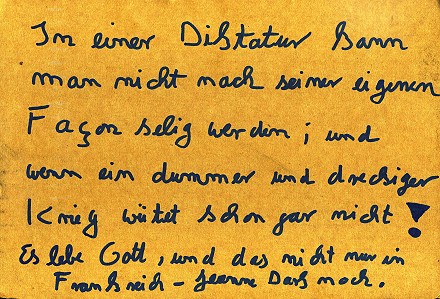 In einer Diktatur kann
man nicht nach seiner eigenen
Façon selig werden; und
wenn ein dummer und dreckiger
Krieg wütet schon gar nicht!
Es lebe Gott, und das nicht nur in
Frankreich - Jeanne Dark noch.